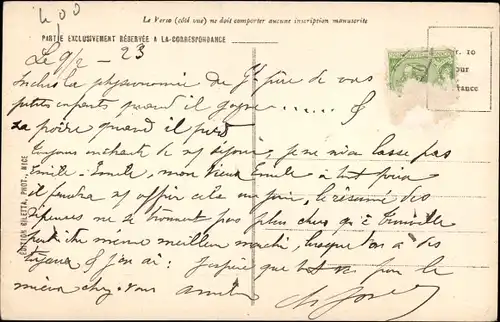 400
Le Verso (côté vue) ne doit comporter aucune inscription manuscrite
PARTIE EXCLUSIVEMENT RÉSERVÉE A LA CORRESPONDANCE
Le 9/2 - 23
Inclus la physionomie de Gd père de vos
petits enfants quand il gagne ...... &
sa poire quand il perd
Toujours enchanté de séjour, je ne m'a lasse pas
Emile - Emile, mon vieux Emile à tout prix
il faudra offrir cela un jour, le résumé des
dépenses ne se trouvent pas plus cher qu'à
peut être même meilleur marché, lorsque l'on a des
tuyaux & j'en ai: J'espère que tout va pour le
mieux chez vous
r. 10
our
tance
ÉDITION GILETTA, PHOT., NICE